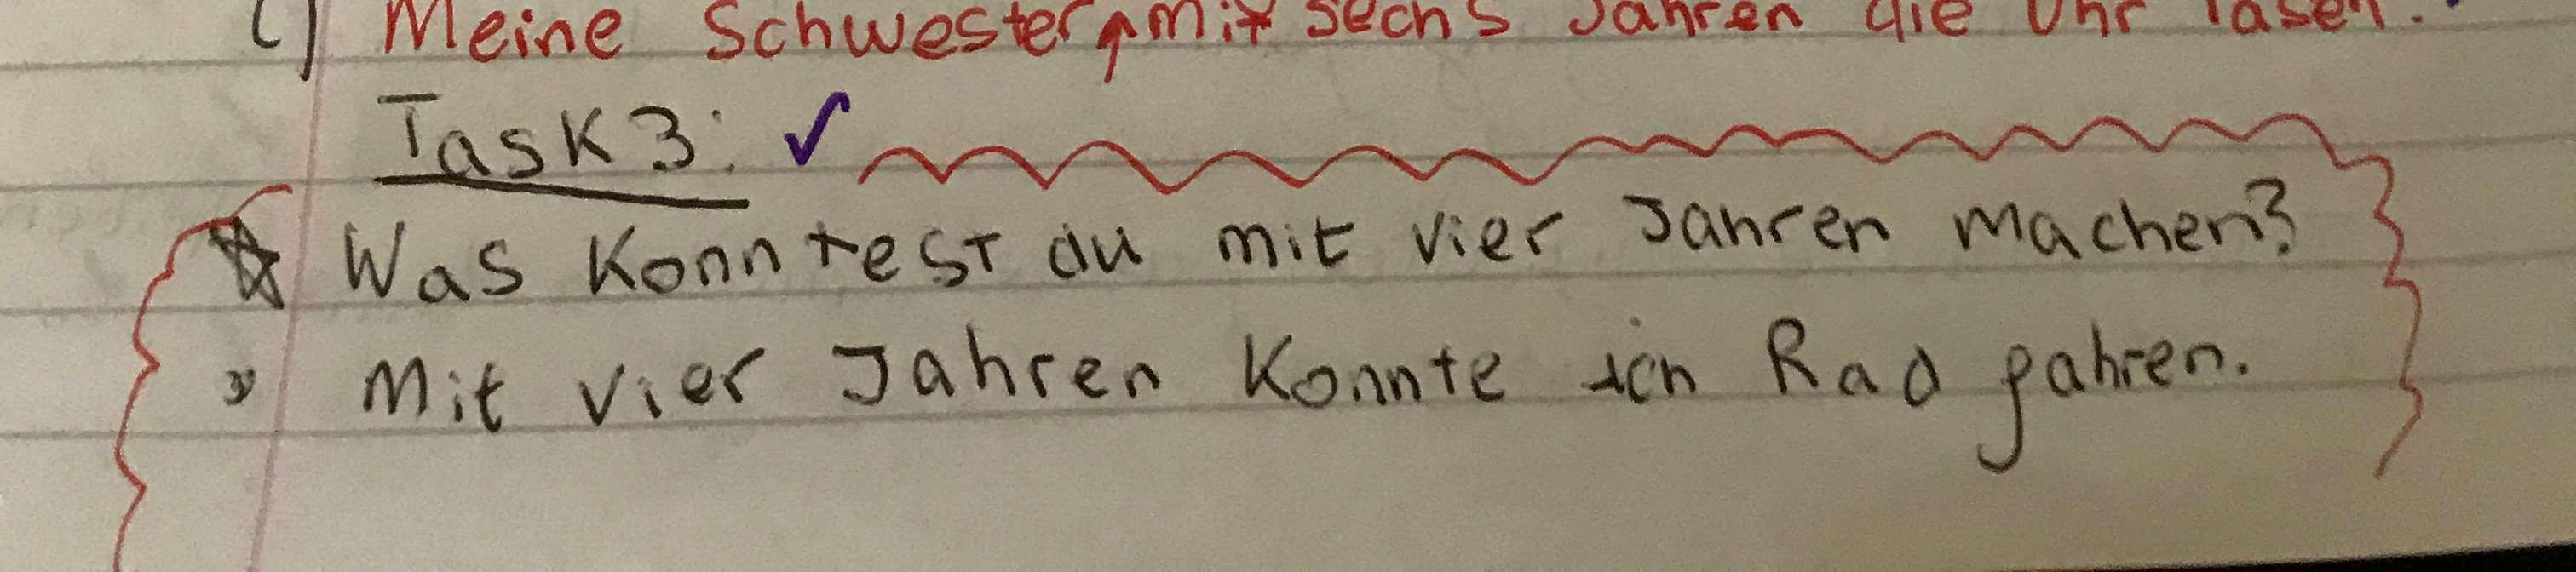 c) Meine Schwester mit sechs Jahren die Uhr lasen.
Task 3: ✓
☆ Was konntest du mit vier Jahren machen?
» Mit vier Jahren konnte ich Rad fahren.